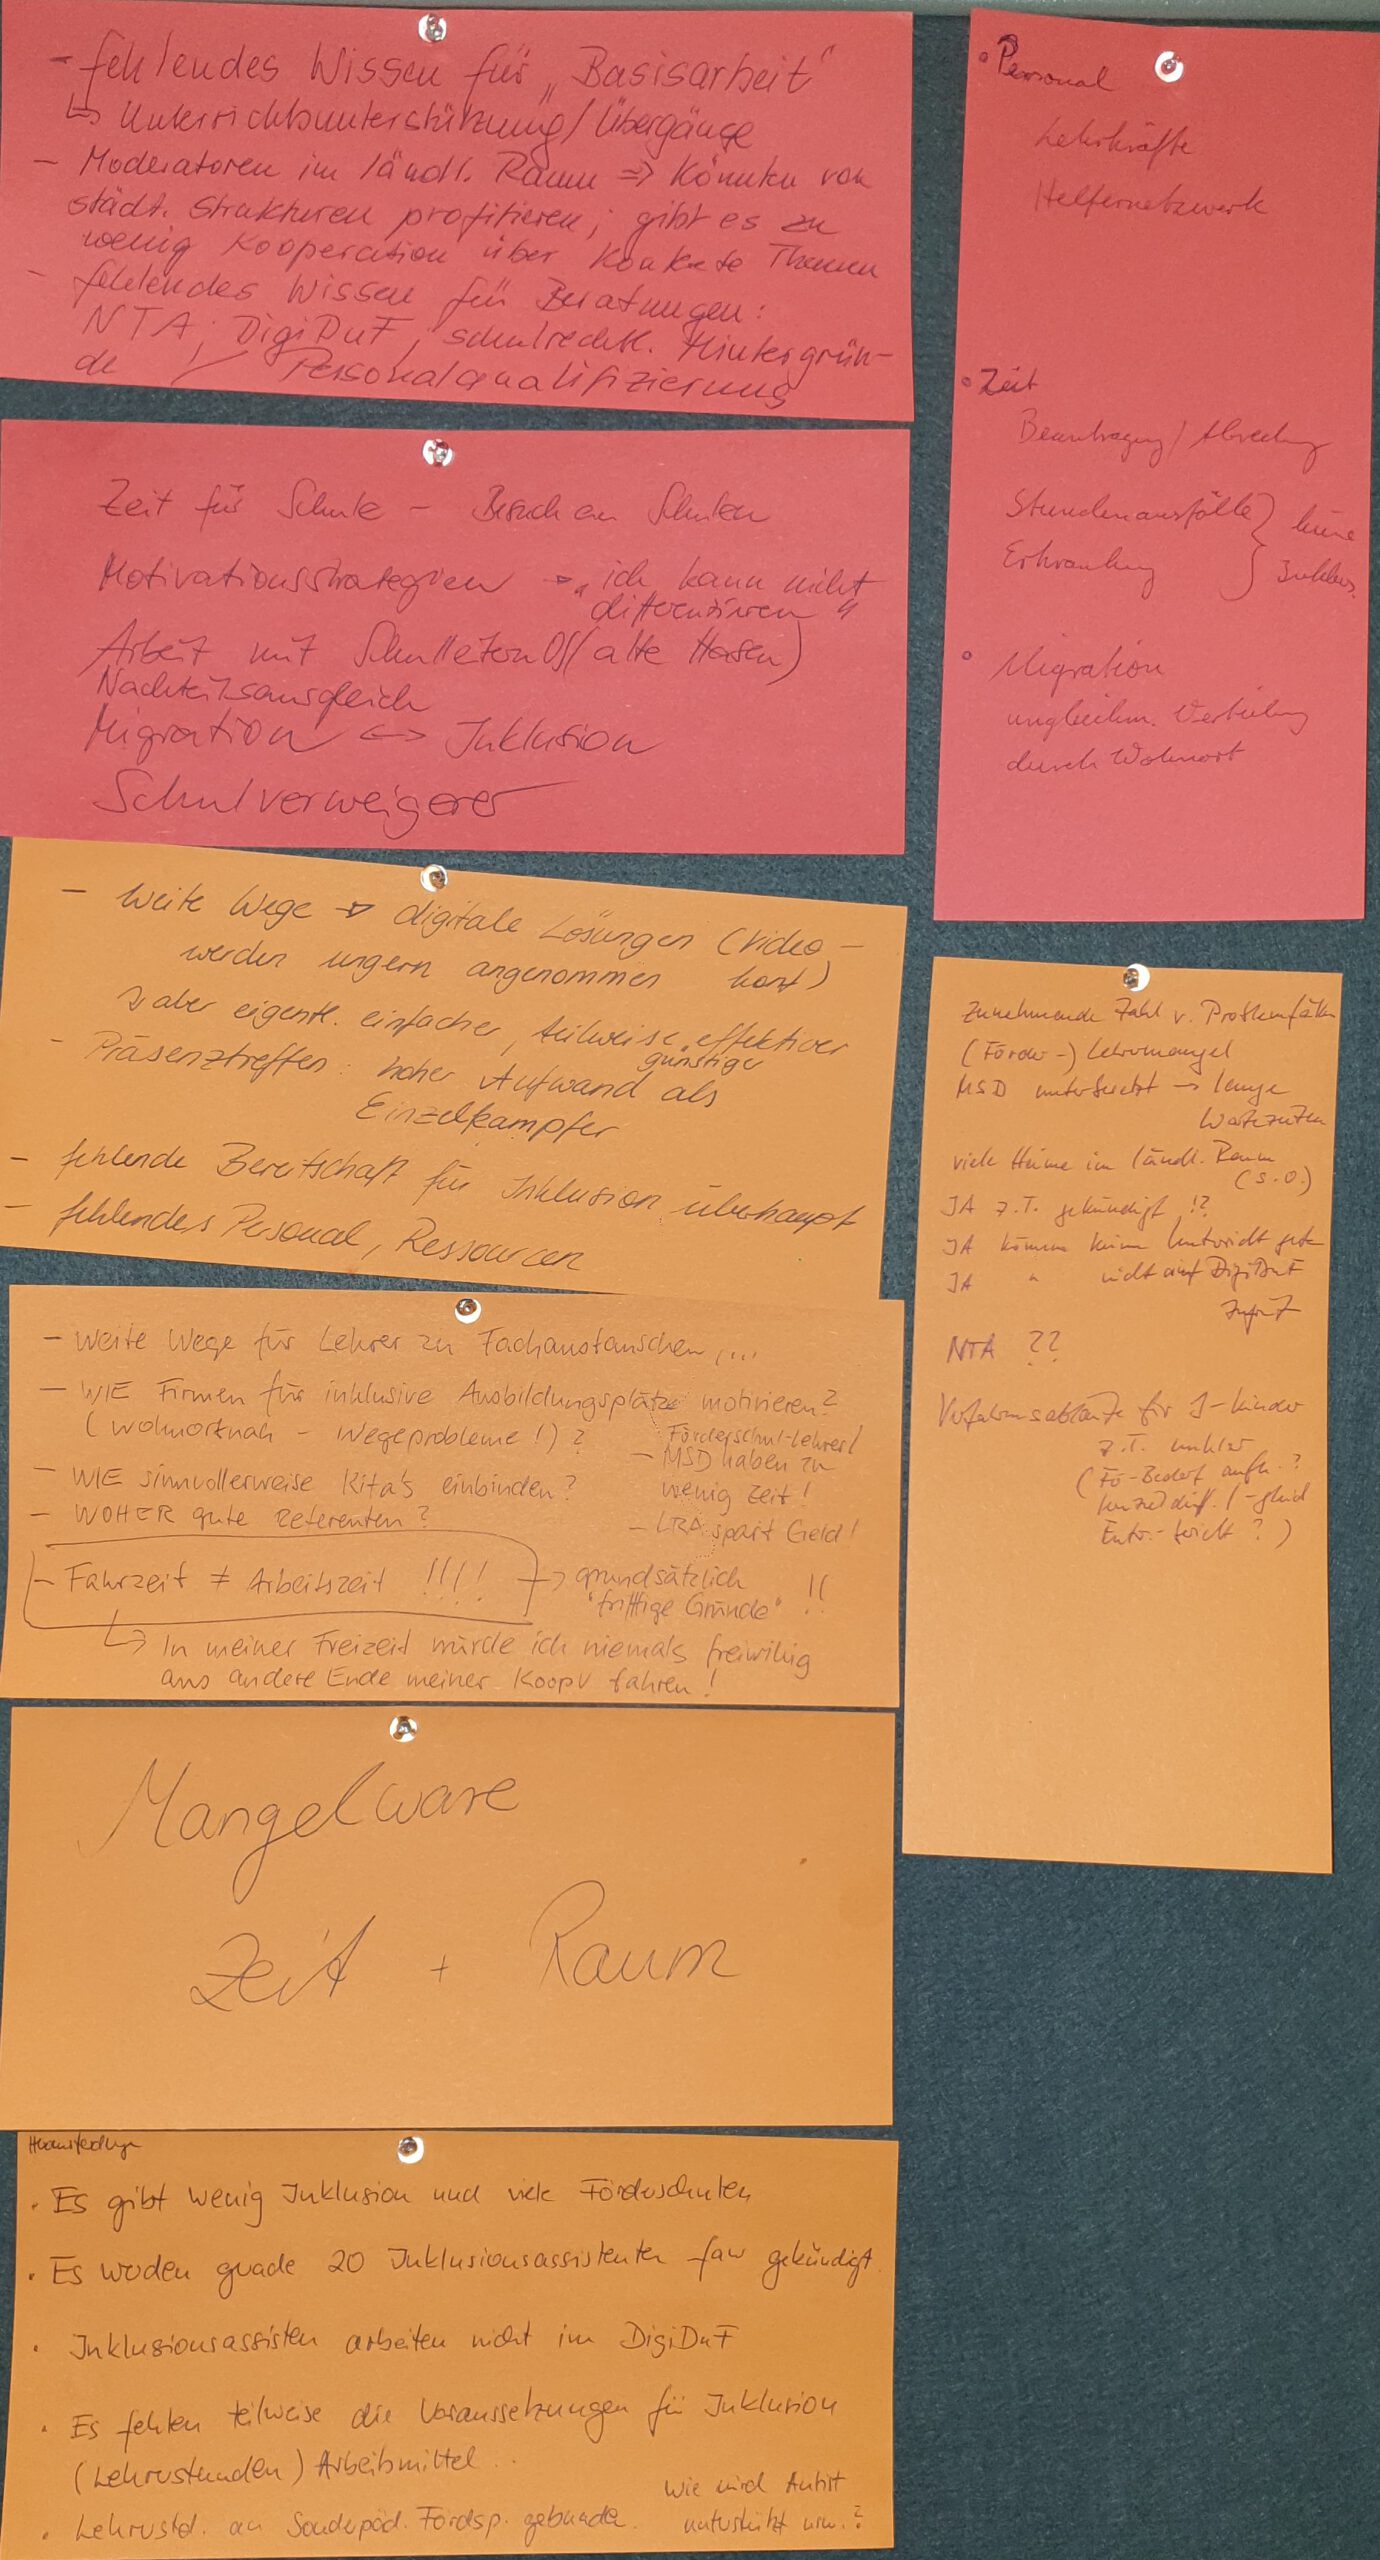 - fehlendes Wissen für „Basisarbeit"
↳ Unterrichtsunterstützung/Übergänge
- Moderatoren im ländl. Raum => könnten von
städt. Strukturen profitieren; gibt es zu
wenig Kooperation über konkrete Themen
- fehlendes Wissen für Beratungen:
NTA, DigiDuF, schulrechtl. Hintergrün-
de / Personalqualifizierung
Zeit für Schule - Besuch an Schulen
Motivationsstrategien → „ich kann nicht
differenzieren"
Arbeit mit SchulleiternOS (alte Hasen)
Nachteilsausgleich
Migration <-> Inklusion
Schulverweigerer
- weite Wege → digitale Lösungen (Video-
werden ungern angenommen konf)
↳ aber eigentl. einfacher, teilweise effektiver
günstiger
- Präsenztreffen: hoher Aufwand als
Einzelkämpfer
- fehlende Bereitschaft für Inklusion überhaupt
- fehlendes Personal, Ressourcen
- weite Wege für Lehrer zu Fachaustauschen,...
- WIE Firmen für inklusive Ausbildungsplätze motivieren?
(wohnortnah - Wegeprobleme!)?
- WIE sinnvollerweise Kita's einbinden?
- WOHER gute Referenten?
Förderschul-Lehrer/
- MSD haben zu
wenig Zeit!
- LRA spart Geld!
- Fahrzeit ≠ Arbeitszeit !!!!
→ grundsätzlich
"triftige Gründe" !!
↳ In meiner Freizeit würde ich niemals freiwillig
ans andere Ende meiner KoopV fahren!
Mangelware
Zeit + Raum
• Es gibt wenig Inklusion und viele Förderschulen
• Es werden gerade 20 Inklusionsassistenten faw gekündigt
• Inklusionsassisten arbeiten nicht im DigiDuF
• Es fehlen teilweise die Voraussetzungen für Inklusion
(Lehrerstunden) Arbeitsmittel
• Lehrerstd. an Sonderpäd. Fördsp. gebunden.
Wie wird Autist
unterstützt usw.?
• Personal
Lehrkräfte
Helfernetzwerk
• Zeit
Beantragung / Abrechnung
Stundenausfälle } keine
Erkrankung
• Migration
ungleichm. Verteilung
durch Wohnort
Zunehmende Zahl v. Problemfällen
(Förder-) Lehrermangel
MSD unterbesetzt → lange
Wartezeiten
viele Heime im ländl. Raum
(s.o.)
IA z.T. gekündigt !?
IA können keinen Unterricht geben
IA " nicht auf DigiDuF
Zugriff
NTA ??
Verfahrensabläufe für I-Kinder
z.T. unklar
(Fö-Bedarf aufh.?